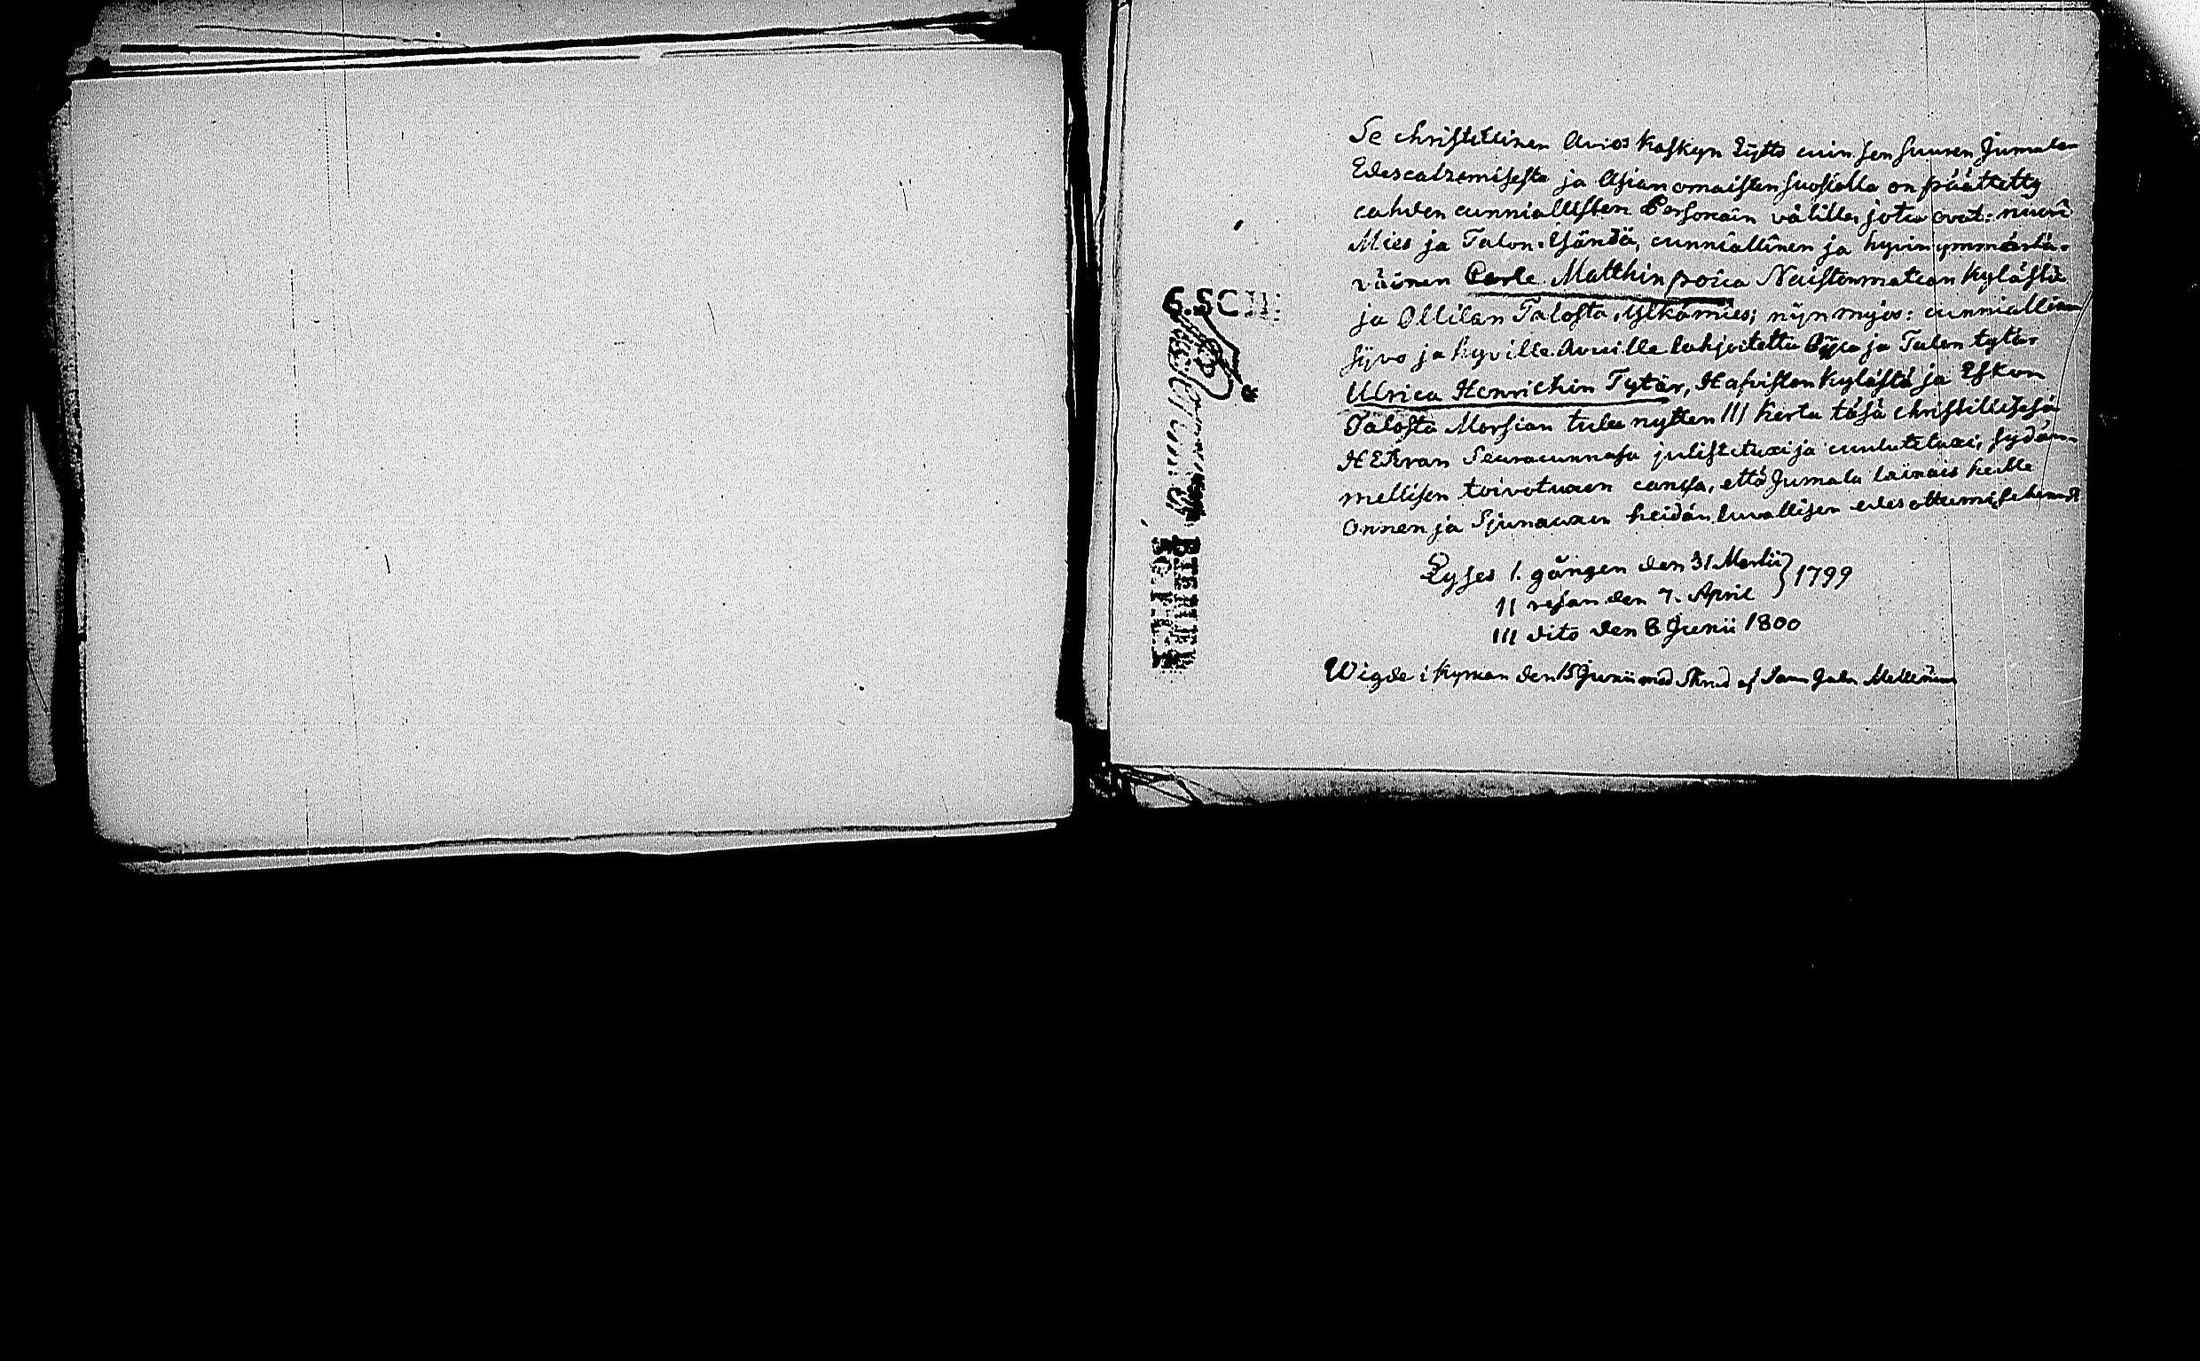 Se christillinen Avios kaskyn Lijtto cuin sen suuren Jumalan
Edescatzemisesta ja Asianomaisten suosiolla on päättetty
cahden cunniallisten Personain välille, jotca ovat: nuori
Mies ja Talon-Isändä, cunniallinen ja hyvin ymmärtä-
väinen Carle Matthin poica Naistenmatcan kylästä
ja Ollilan Talosta, ylkämies; nijn myös: cunniallinen
sijvo ja hyville Avuille lahjoitettu Pijca ja Talon tytär
Ulrica Henrichin Tytär, Hafviston kylästä ja Eskon
Talosta Morsian tulee nytten III kerta täsä christillisesä
HERran Seuracunnasa julistetuxi ja cuulutetuxi, sydäm-
mellisen toivotuxen cansa, että Jumala lainais heille
Onnen ja Sjunauxen heidän luvallisen edesottamisehens
Lyses 1. gången den 31 Martii } 1799
II resan den 7. April
III dito den 8 Junii 1800
Wigde i kyrkan den 15 Junii med Skrud af
G. SCH